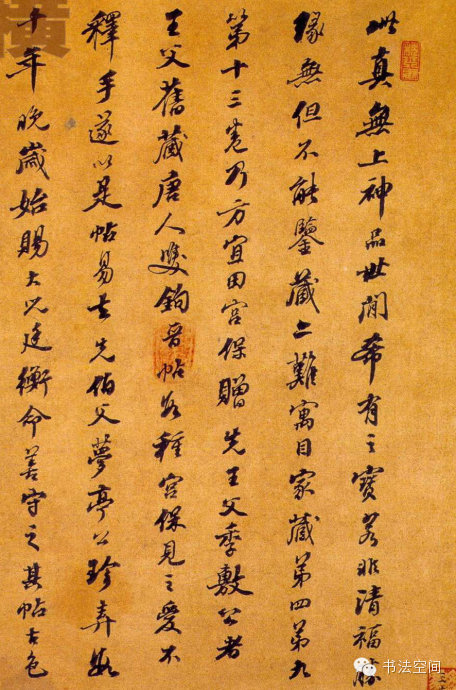 此真無上神品世間希有之寶若非清福勝
緣無但不能鑒藏亦難寓目家藏第四第九
第十三卷乃方宜田宮保贈先王父季敷公者
王父舊藏唐人雙鉤晉帖數種宮保見之愛不
釋手遂以是帖易去先伯父夢亭公珍弆數
十年晚歲始賜大兄廷衡命善守之其帖古色
书法空间